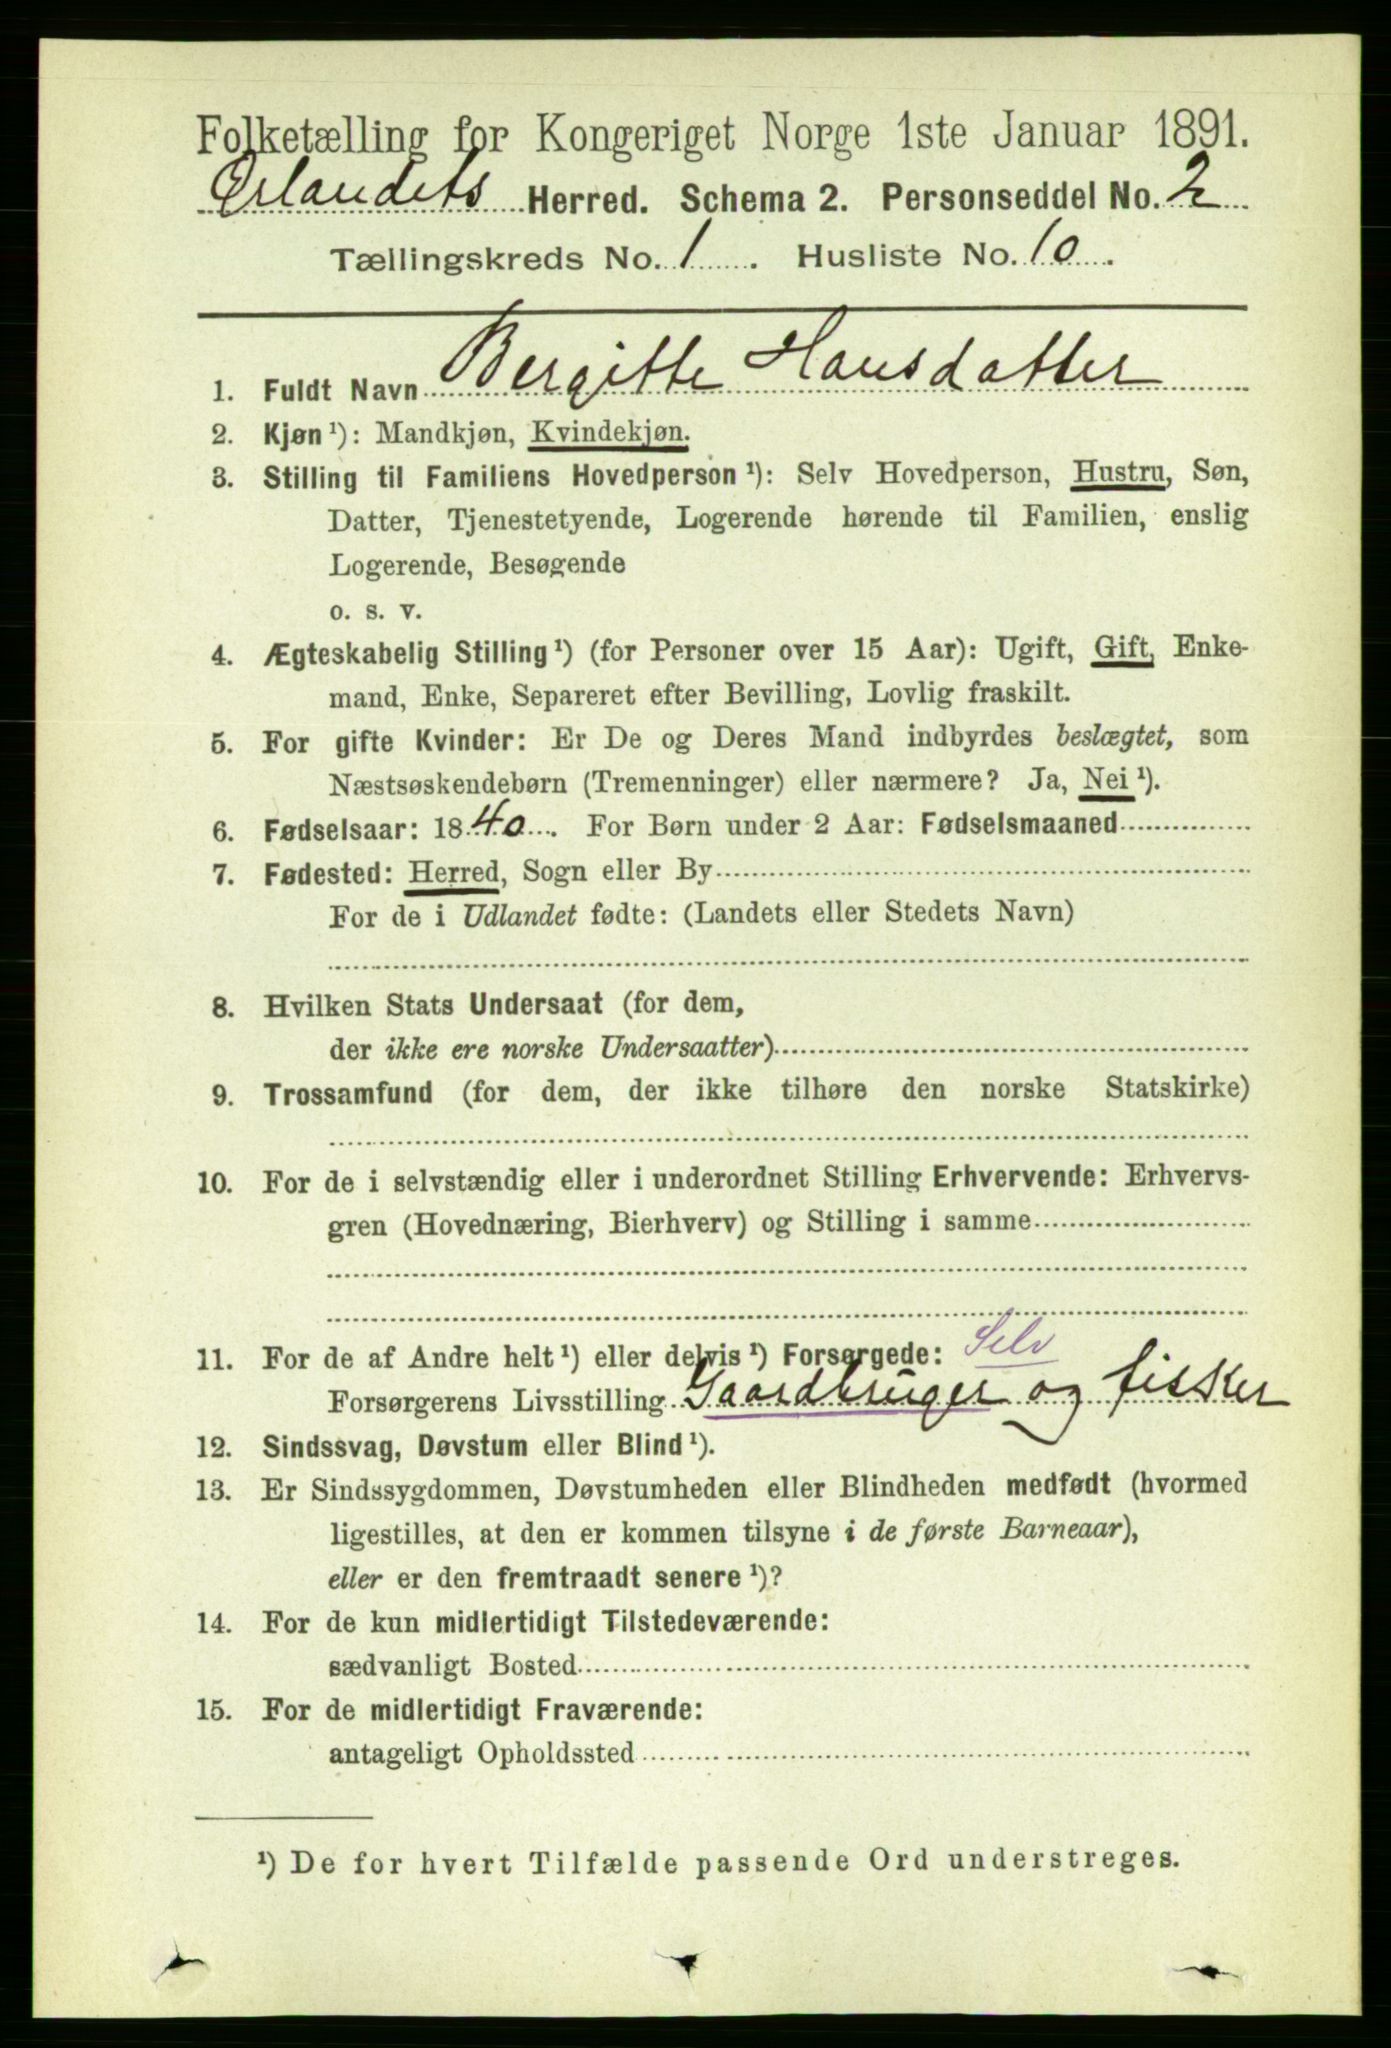 Folketælling for Kongeriget Norge 1ste Januar 1891.
Ørlandets Herred. Schema 2. Personseddel No. 2
Tællingskreds No. 1. Husliste No. 10.
1. Fuldt Navn Bergitte Hansdatter
2. Kjøn ¹): Mandkjøn, Kvindekjøn.
3. Stilling til Familiens Hovedperson ¹): Selv Hovedperson, Hustru, Søn,
Datter, Tjenestetyende, Logerende hørende til Familien, enslig
Logerende, Besøgende
o. s. v.
4. Ægteskabelig Stilling ¹) (for Personer over 15 Aar): Ugift, Gift, Enke-
mand, Enke, Separeret efter Bevilling, Lovlig fraskilt.
5. For gifte Kvinder: Er De og Deres Mand indbyrdes beslægtet, som
Næstsøskendebørn (Tremenninger) eller nærmere? Ja, Nei ¹).
6. Fødselsaar: 1840. For Børn under 2 Aar: Fødselsmaaned
7. Fødested: Herred, Sogn eller By
For de i Udlandet fødte: (Landets eller Stedets Navn)
8. Hvilken Stats Undersaat (for dem,
der ikke ere norske Undersaatter)
9. Trossamfund (for dem, der ikke tilhøre den norske Statskirke)
10. For de i selvstændig eller i underordnet Stilling Erhvervende: Erhvervs-
gren (Hovednæring, Bierhverv) og Stilling i samme
11. For de af Andre helt ¹) eller delvis ¹) Forsørgede: Selv
Forsørgerens Livsstilling Gaardbruger og fisker
12. Sindssvag, Døvstum eller Blind ¹).
13. Er Sindssygdommen, Døvstumheden eller Blindheden medfødt (hvormed
ligestilles, at den er kommen tilsyne i de første Barneaar),
eller er den fremtraadt senere ¹)?
14. For de kun midlertidigt Tilstedeværende:
sædvanligt Bosted
15. For de midlertidigt Fraværende:
antageligt Opholdssted
¹) De for hvert Tilfælde passende Ord understreges.